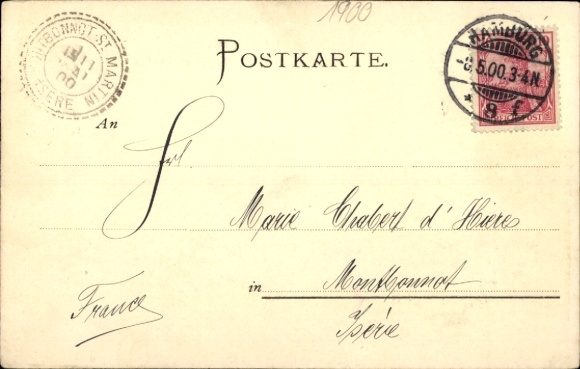 1900
MONTBONNOT-ST MARTIN
ISÈRE
11
MAI
00
POSTKARTE.
HAMBURG
5.00.3-4N.
* 9 f
REICHSPOST
An
Frl
Marie Chabert d'Hières
in Montbonnot
France
Isérie